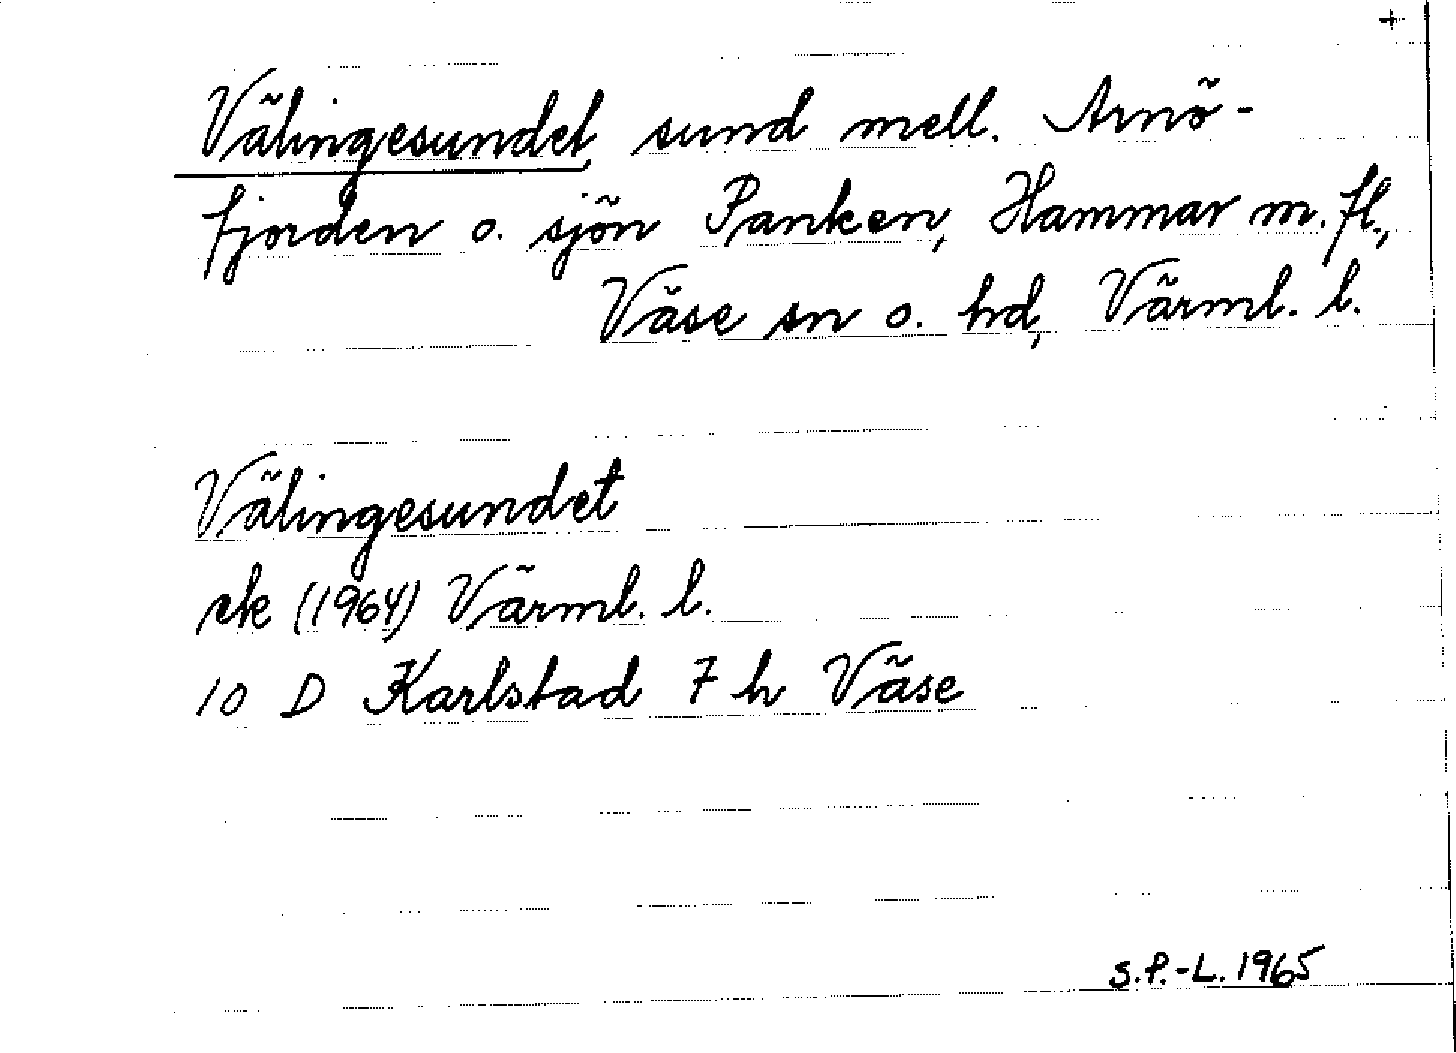 +
Välingesundet, sund mell. Arnö-
fjorden o. sjön Panken, Hammar m. fl.,
Väse sn o. hd, Värml. l.
Välingesundet
ek (1964) Värml. l.
10 D Karlstad 7 h Väse
S.P.-L. 1965